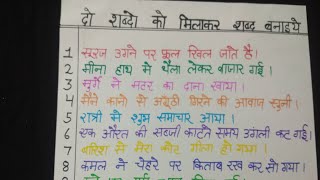 दो शब्दो को मिलाकर शब्द बनाइये
1 सूरज उगने पर फूल खिल जाते है।
2 मीना हाथ मे थैला लेकर बाजार गई।
3 मुर्गे ने मटर का दाना खाया।
4 मैंने कानो से अंगूठी गिरने की आवाज सुनी।
5 रात्री से शुभ समाचार आया।
6 एक औरत की सब्जी काटते समय उंगली कट गई।
7 बारिश से मेरा कोट गीला हो गया।
8 कमल ने चेहरे पर किताब रख कर सो गया।